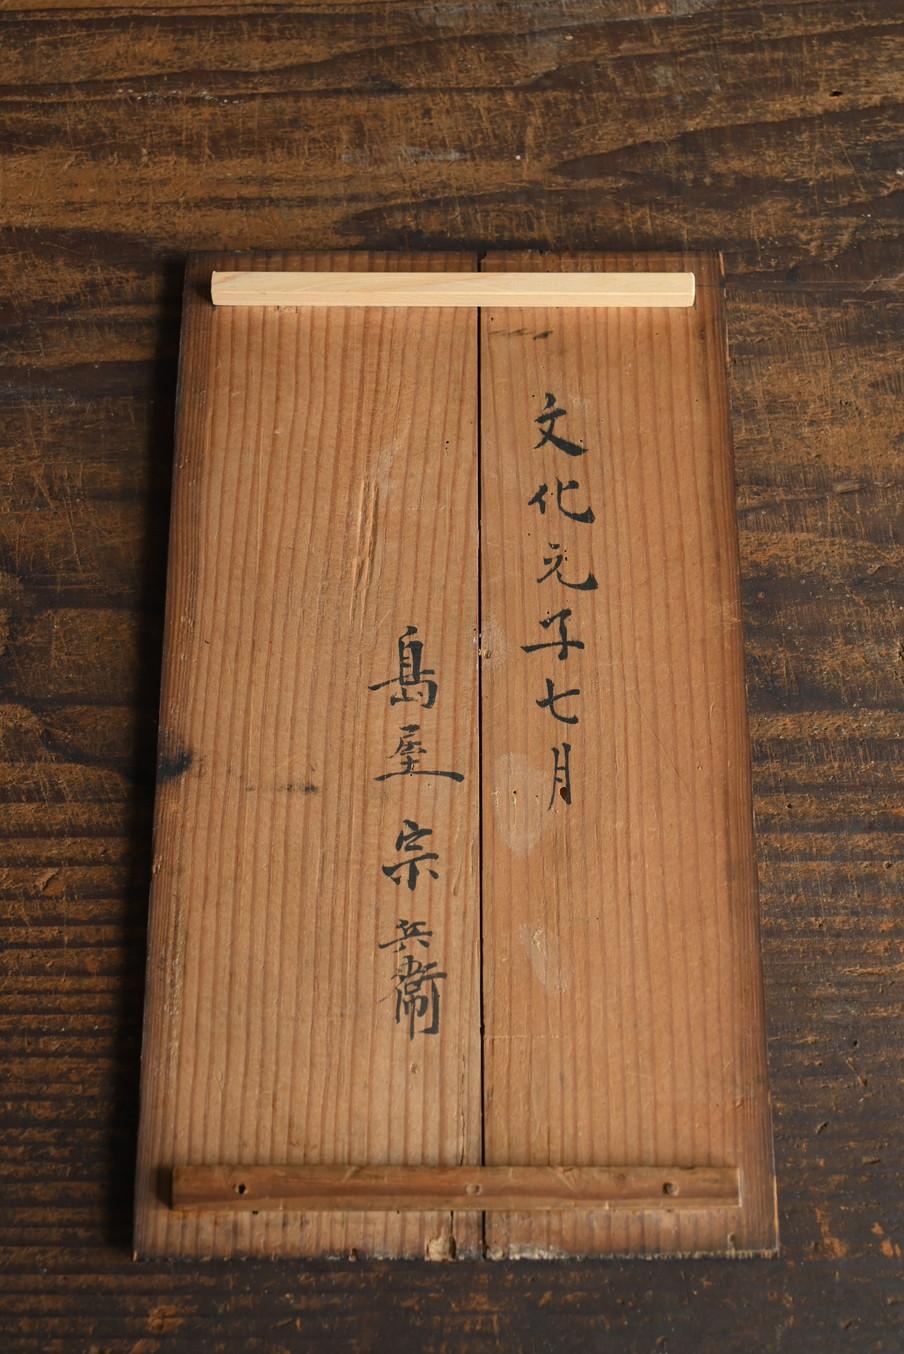 文化元子七月
島屋宗兵衛